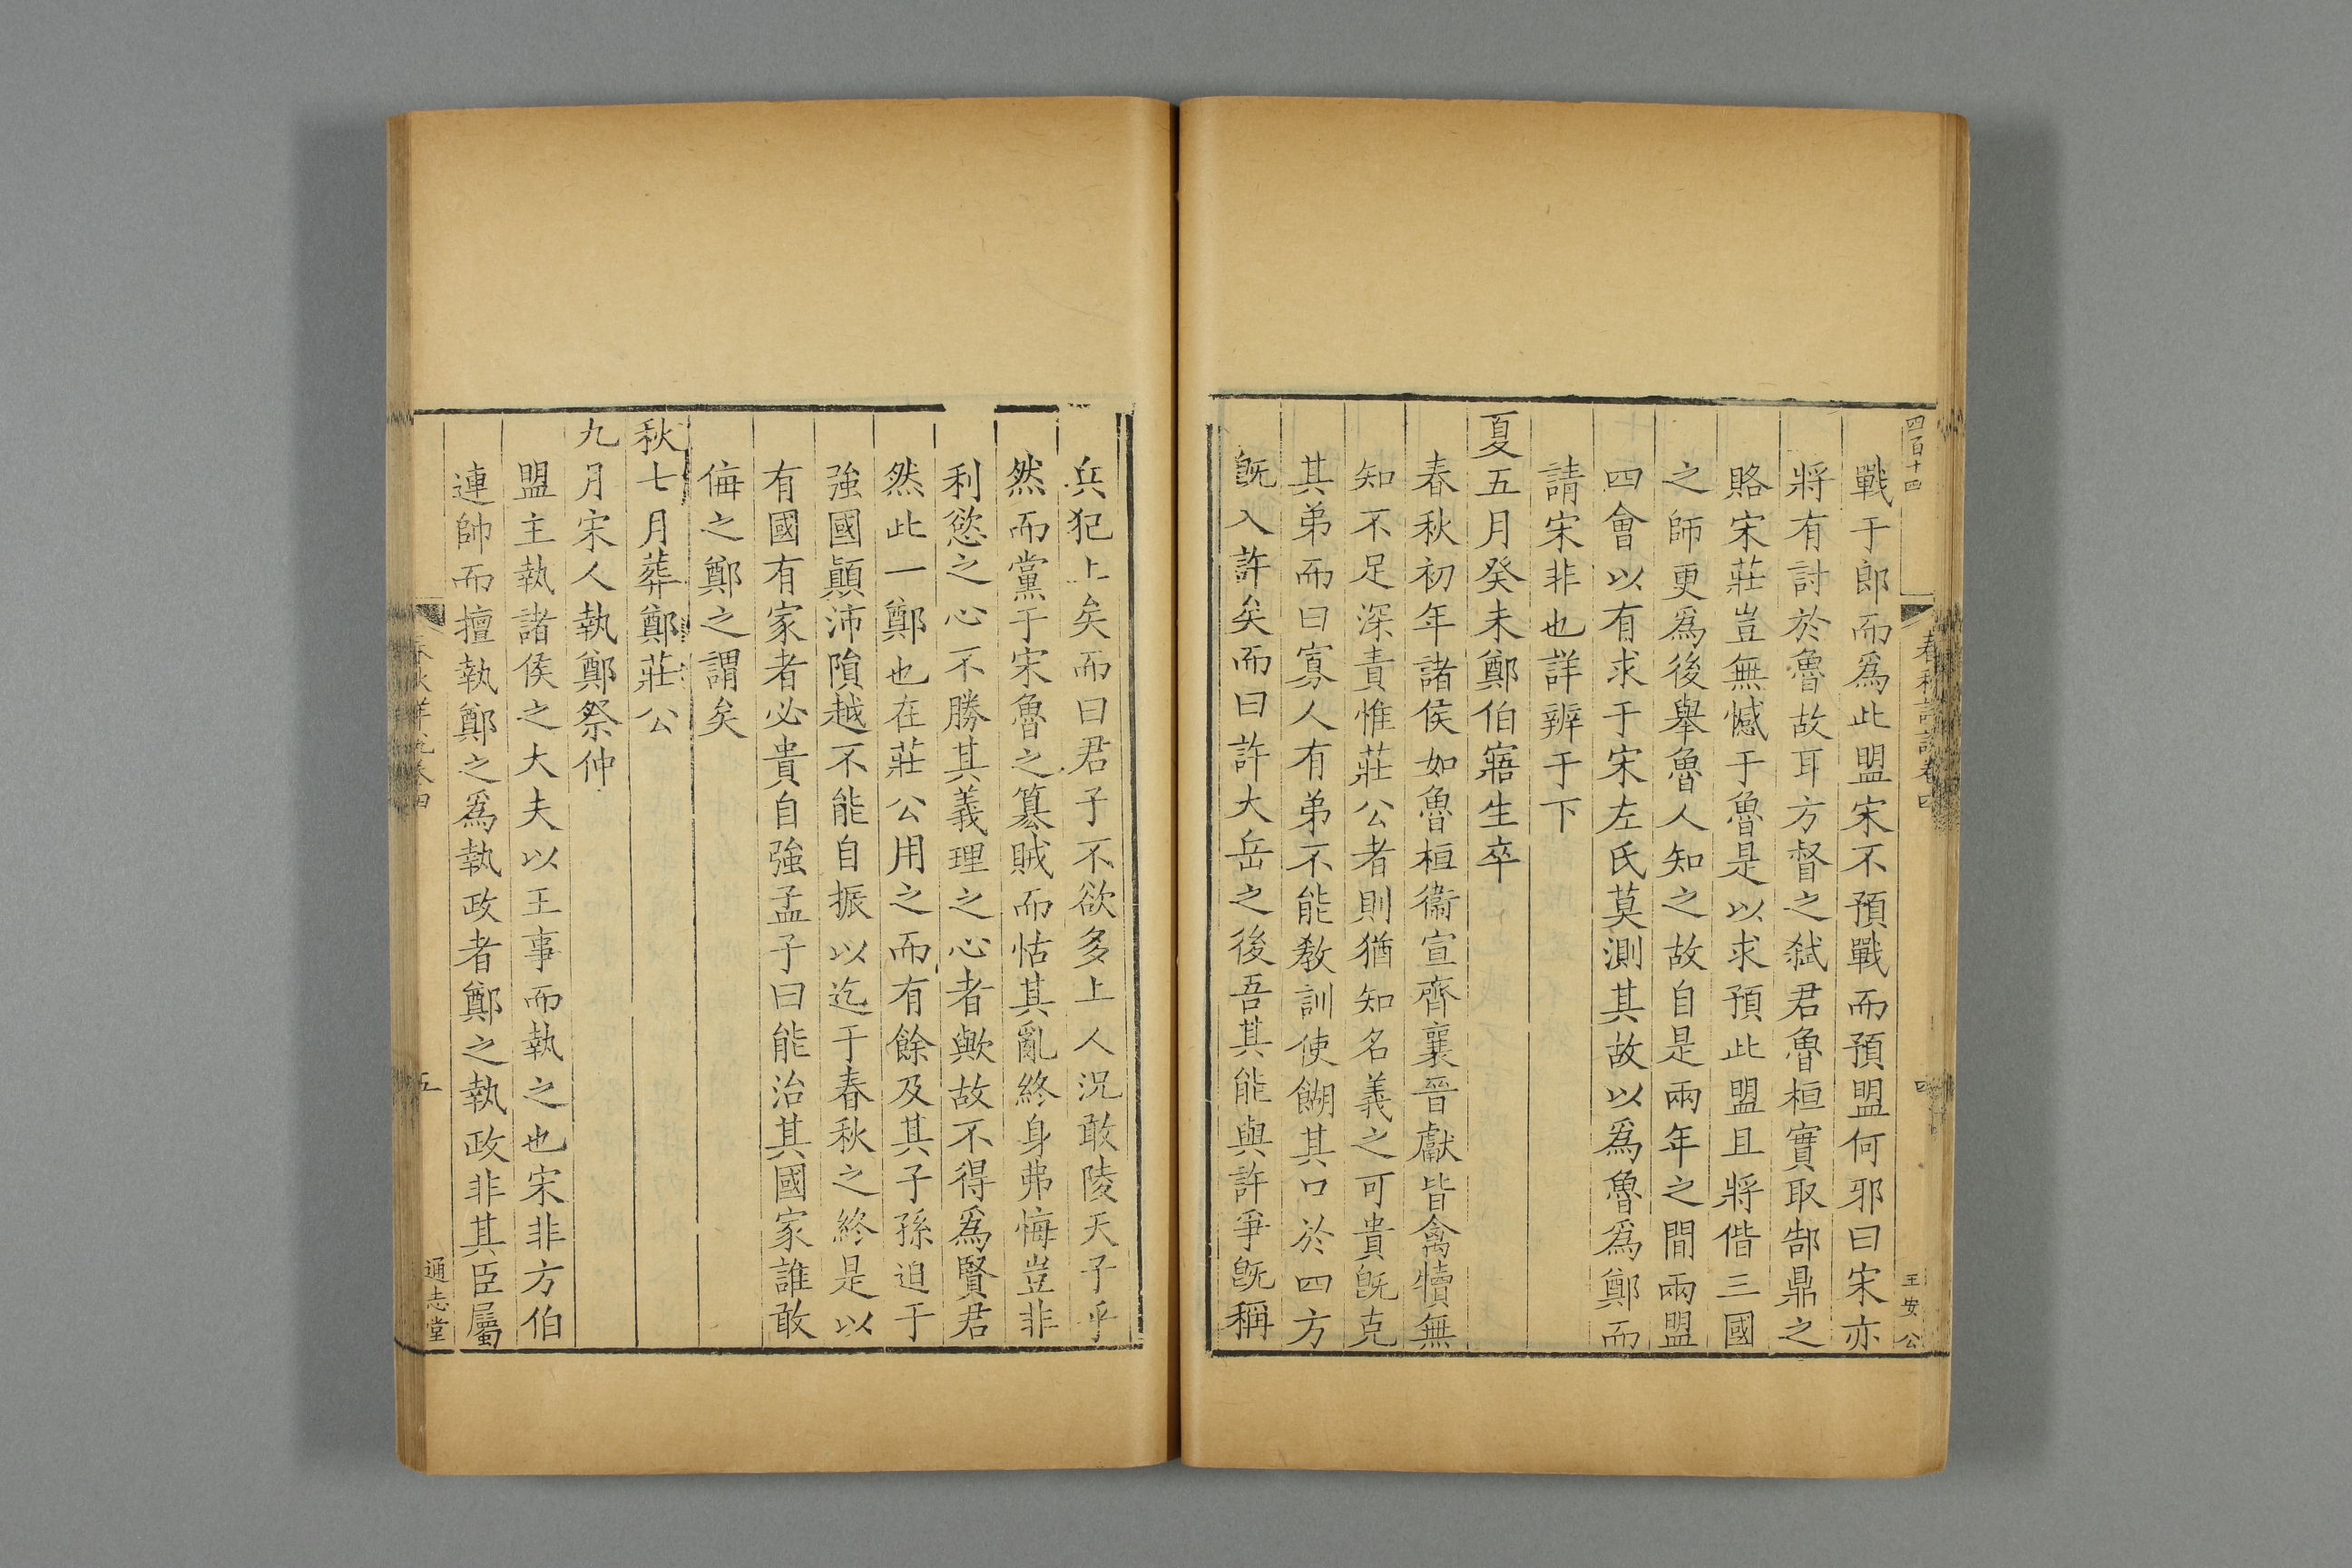 四百十四
春秋詳說卷四
四
王安公
戰于郎而爲此盟宋不預戰而預盟何邪曰宋亦
將有討於魯故耳方督之弑君魯桓實取郜鼎之
賂宋莊豈無憾于魯是以求預此盟且將偕三國
之師更爲後舉魯人知之故自是兩年之間兩盟
四會以有求于宋左氏莫測其故以爲魯爲鄭而
請宋非也詳辨于下
夏五月癸未鄭伯寤生卒
春秋初年諸侯如魯桓衞宣齊襄晉獻皆禽犢無
知不足深責惟莊公者則猶知名義之可貴旣克
其弟而曰寡人有弟不能敎訓使餬其口於四方
旣入許矣而曰許大岳之後吾其能與許爭旣稱
兵犯上矣而曰君子不欲多上人況敢陵天子乎
然而黨于宋魯之簒賊而怙其亂終身弗悔豈非
利慾之心不勝其義理之心者歟故不得爲賢君
然此一鄭也在莊公用之而有餘及其子孫迫于
強國顚沛隕越不能自振以迄于春秋之終是以
有國有家者必貴自強孟子曰能治其國家誰敢
侮之鄭之謂矣
秋七月葬鄭莊公
九月宋人執鄭祭仲
盟主執諸侯之大夫以王事而執之也宋非方伯
連帥而擅執鄭之爲執政者鄭之執政非其臣屬
春秋詳說卷四
五
通志堂